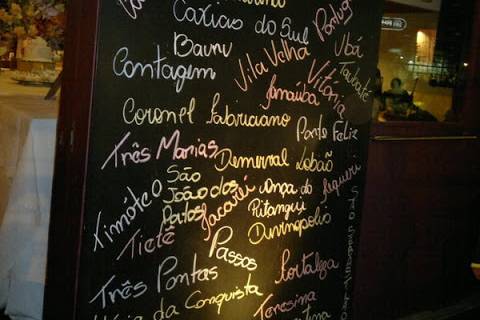 Caxias do Sul
Portug
Bauru
Ubá
Contagem
Vila Velha
Vitória
Taubaté
Janaúba
Coronel Fabriciano
Ponto Feliz
Três Marias
Demerval Lobão
São
João dos
Patos
Timóteo
Jacareí
onça do
Pitangui
Jequeri
Tietê
Divinópolis
Passos
Fortaleza
Três Pontas
da Conquista
Teresina